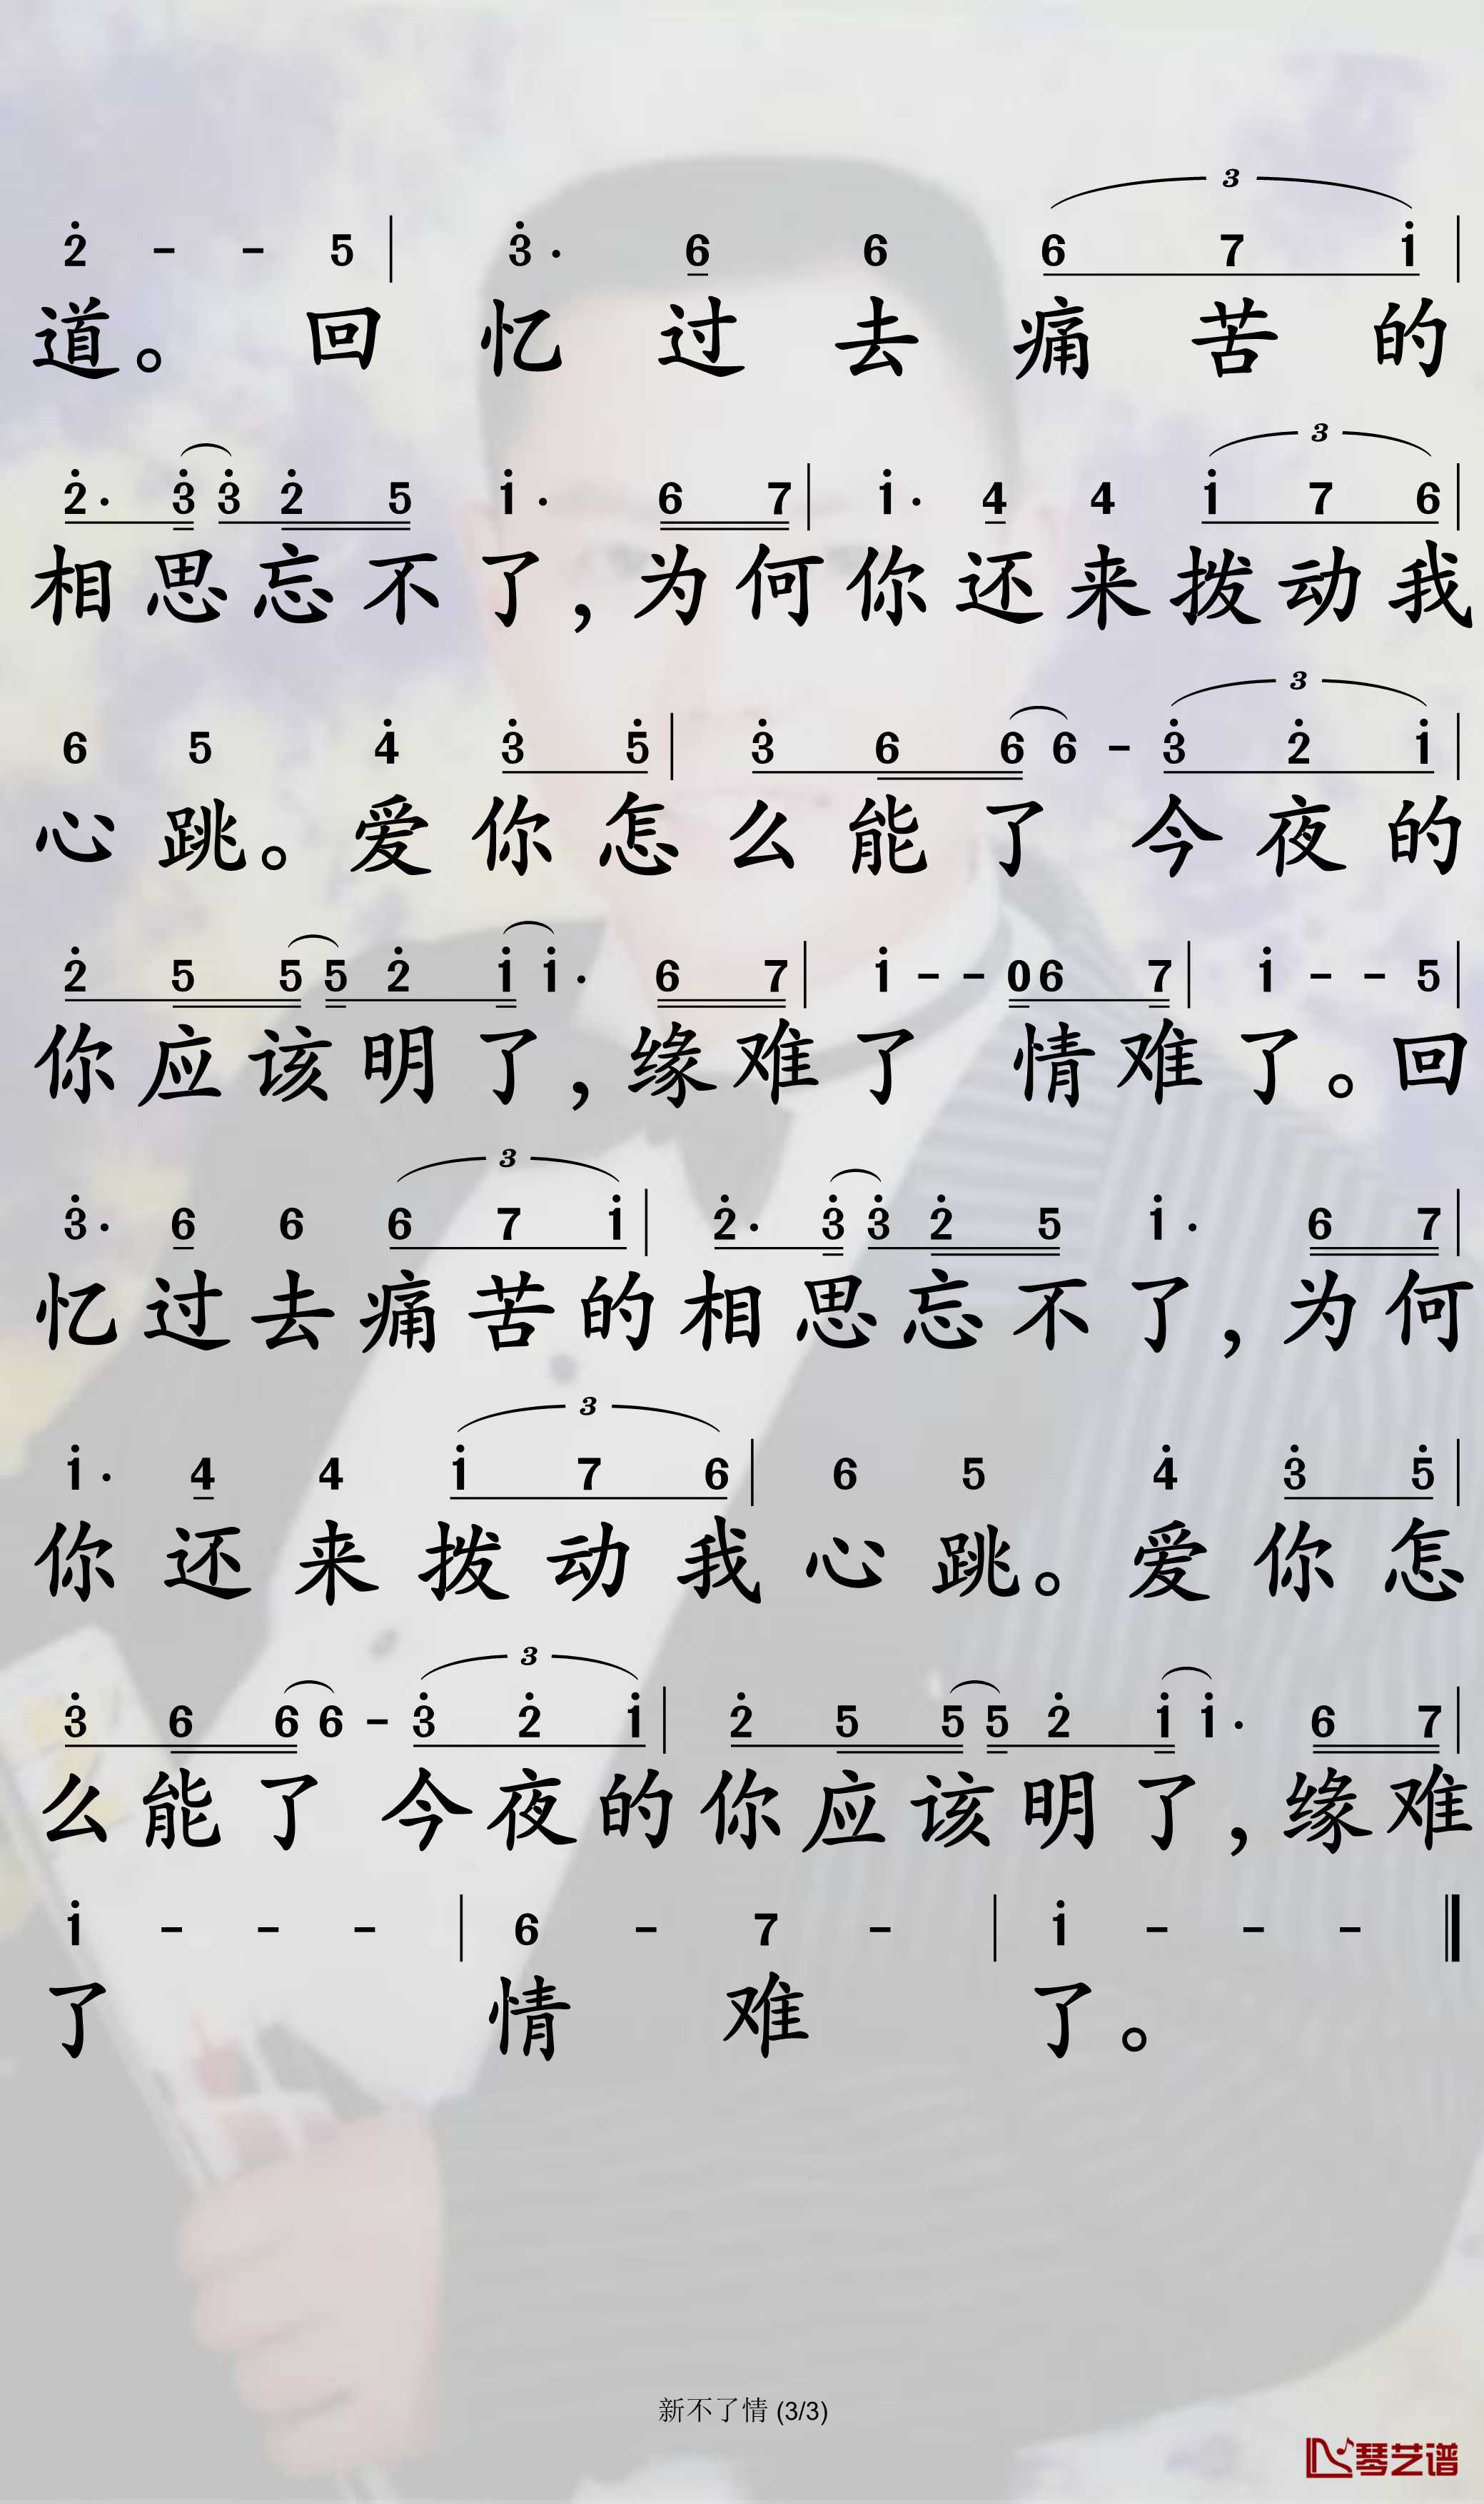 3
2̇ - - 5 | 3̇ · 6 6 6 7 1̇ |
道。 回 忆 过 去 痛 苦 的
3
2̇ · 3̇ 3̇ 2̇ 5 1̇ · 6 7 | 1̇ · 4 4 1̇ 7 6 |
相 思 忘 不 了 , 为 何 你 还 来 拨 动 我
3
6 5 4̇ 3̇ 5̇ | 3̇ 6 6 6 - 3̇ 2̇ 1̇ |
心 跳。 爱 你 怎 么 能 了 今 夜 的
2̇ 5 5 5 2̇ 1̇ 1̇ · 6 7 | 1̇ - - 0 6 7 | 1̇ - - 5 |
你 应 该 明 了 , 缘 难 了 情 难 了。 回
3
3̇ · 6 6 6 7 1̇ | 2̇ · 3̇ 3̇ 2̇ 5 1̇ · 6 7 |
忆 过 去 痛 苦 的 相 思 忘 不 了 , 为 何
3
1̇ · 4 4 1̇ 7 6 | 6 5 4̇ 3̇ 5̇ |
你 还 来 拨 动 我 心 跳。 爱 你 怎
3
3̇ 6 6 6 - 3̇ 2̇ 1̇ | 2̇ 5 5 5 2̇ 1̇ 1̇ · 6 7 |
么 能 了 今 夜 的 你 应 该 明 了 , 缘 难
1̇ - - - | 6 - 7 - | 1̇ - - - ‖
了 情 难 了。
新不了情 (3/3)
琴艺谱